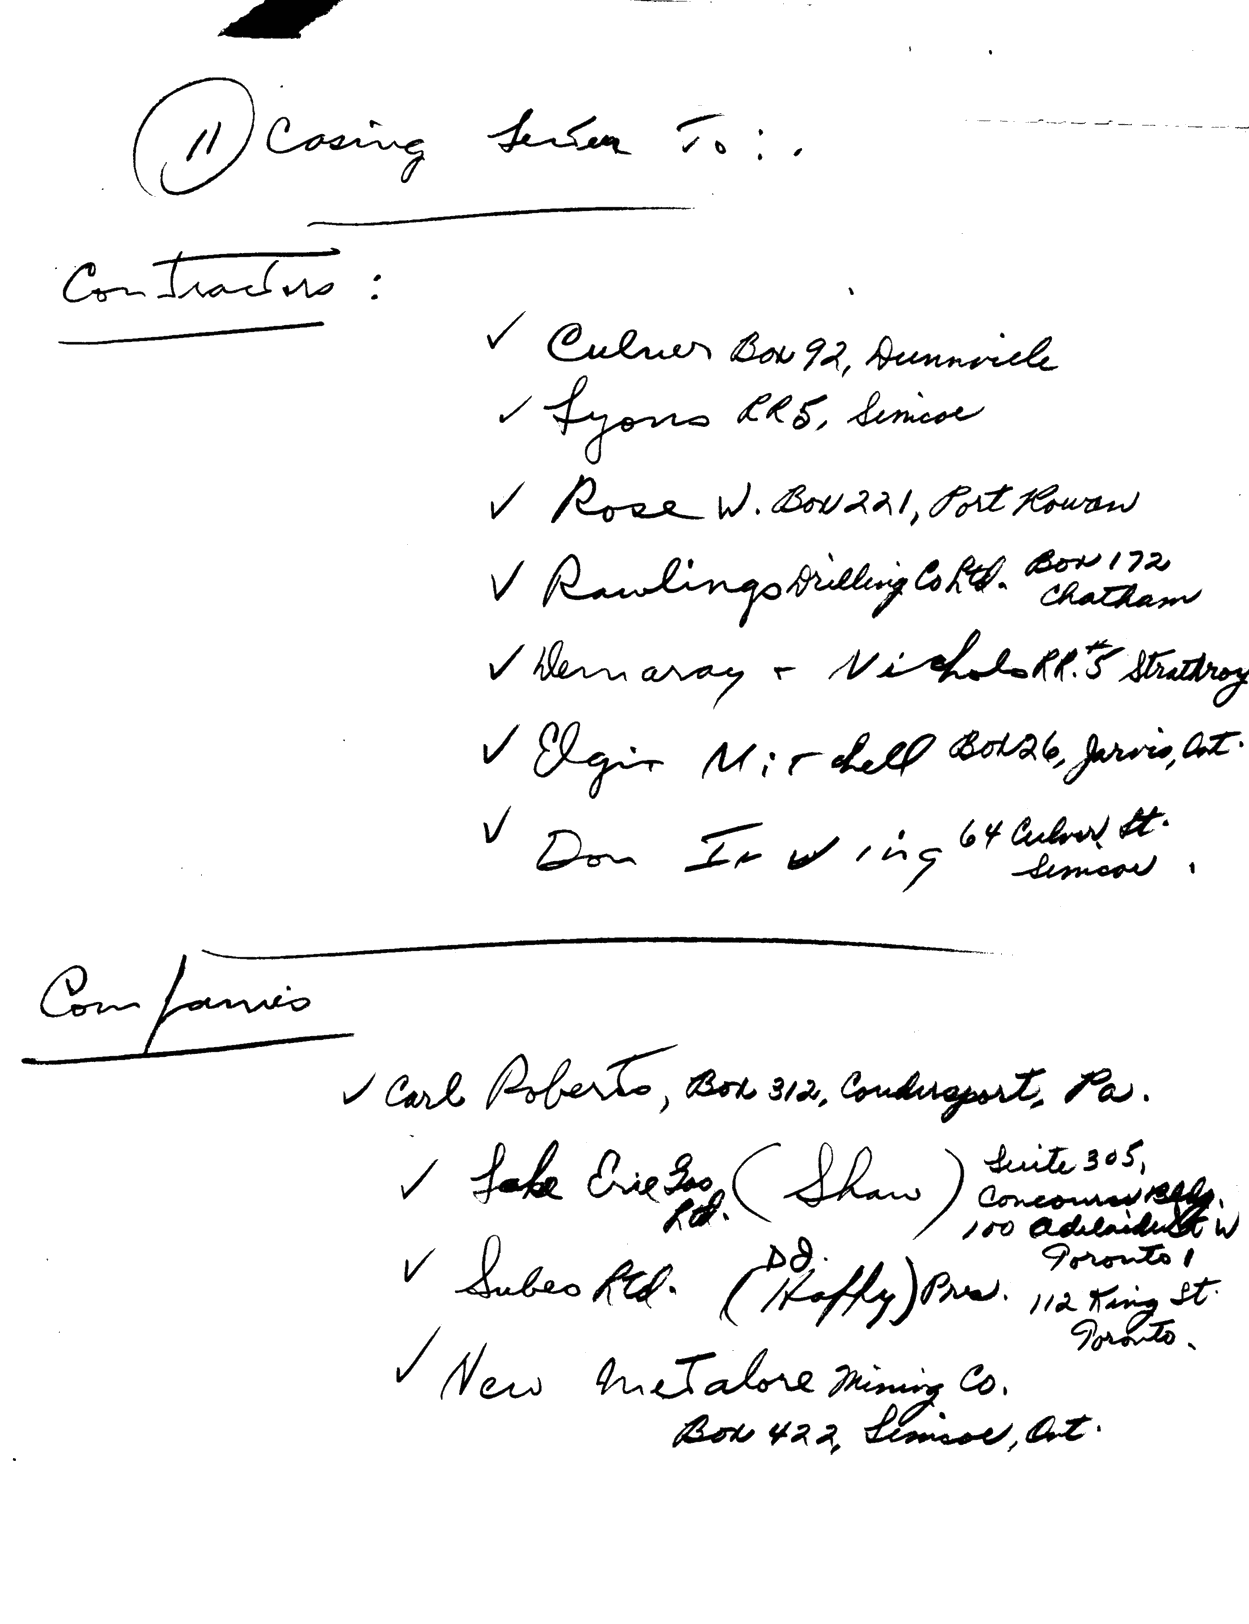 11 Casing Letter To:.
Contractors:
✓ Culver Box 92, Dunnville
✓ Lyons RR5, Simcoe
✓ Rose W. Box 221, Port Rowan
✓ Rawlings Drilling Co Ltd. Box 172
Chatham
✓ Demaray + Nichols RR.#5 Strathroy
✓ Elgin Mitchell Box 26, Jarvis, Ont.
✓ Don Irwing 64 Culver St.
Simcoe.
Companies
✓ Carl Roberts, Box 312, Coudersport, Pa.
✓ Lake Erie Gas Ltd. (Shaw) Suite 305,
Concourse Bldg.
100 Adelaide St W
Toronto 1
✓ Ltd. Pres. 112 King St.
Toronto.
✓ New Metalore Mining Co.
Box 422, Simcoe, Ont.